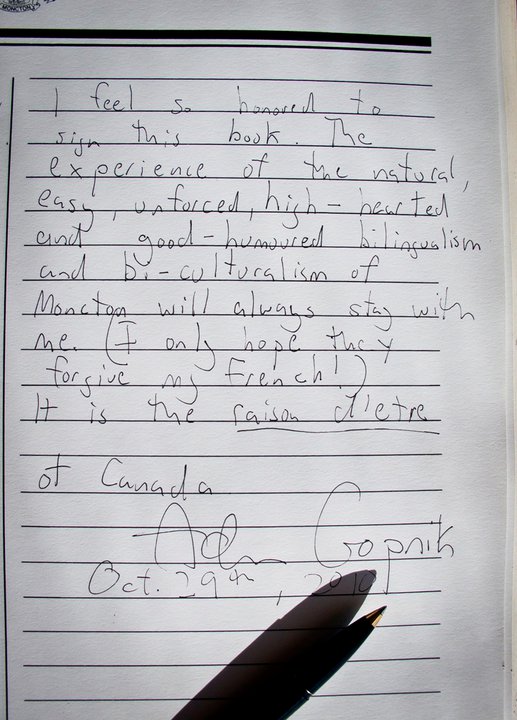 MONCTON
I feel so honored to
sign this book. The
experience of the natural,
easy, unforced, high-hearted
and good-humoured bilingualism
and bi-culturalism of
Moncton will always stay with
me. (I only hope they
forgive my French!)
It is the raison d'etre
of Canada
Adam Gopnik
Oct. 29th, 2010